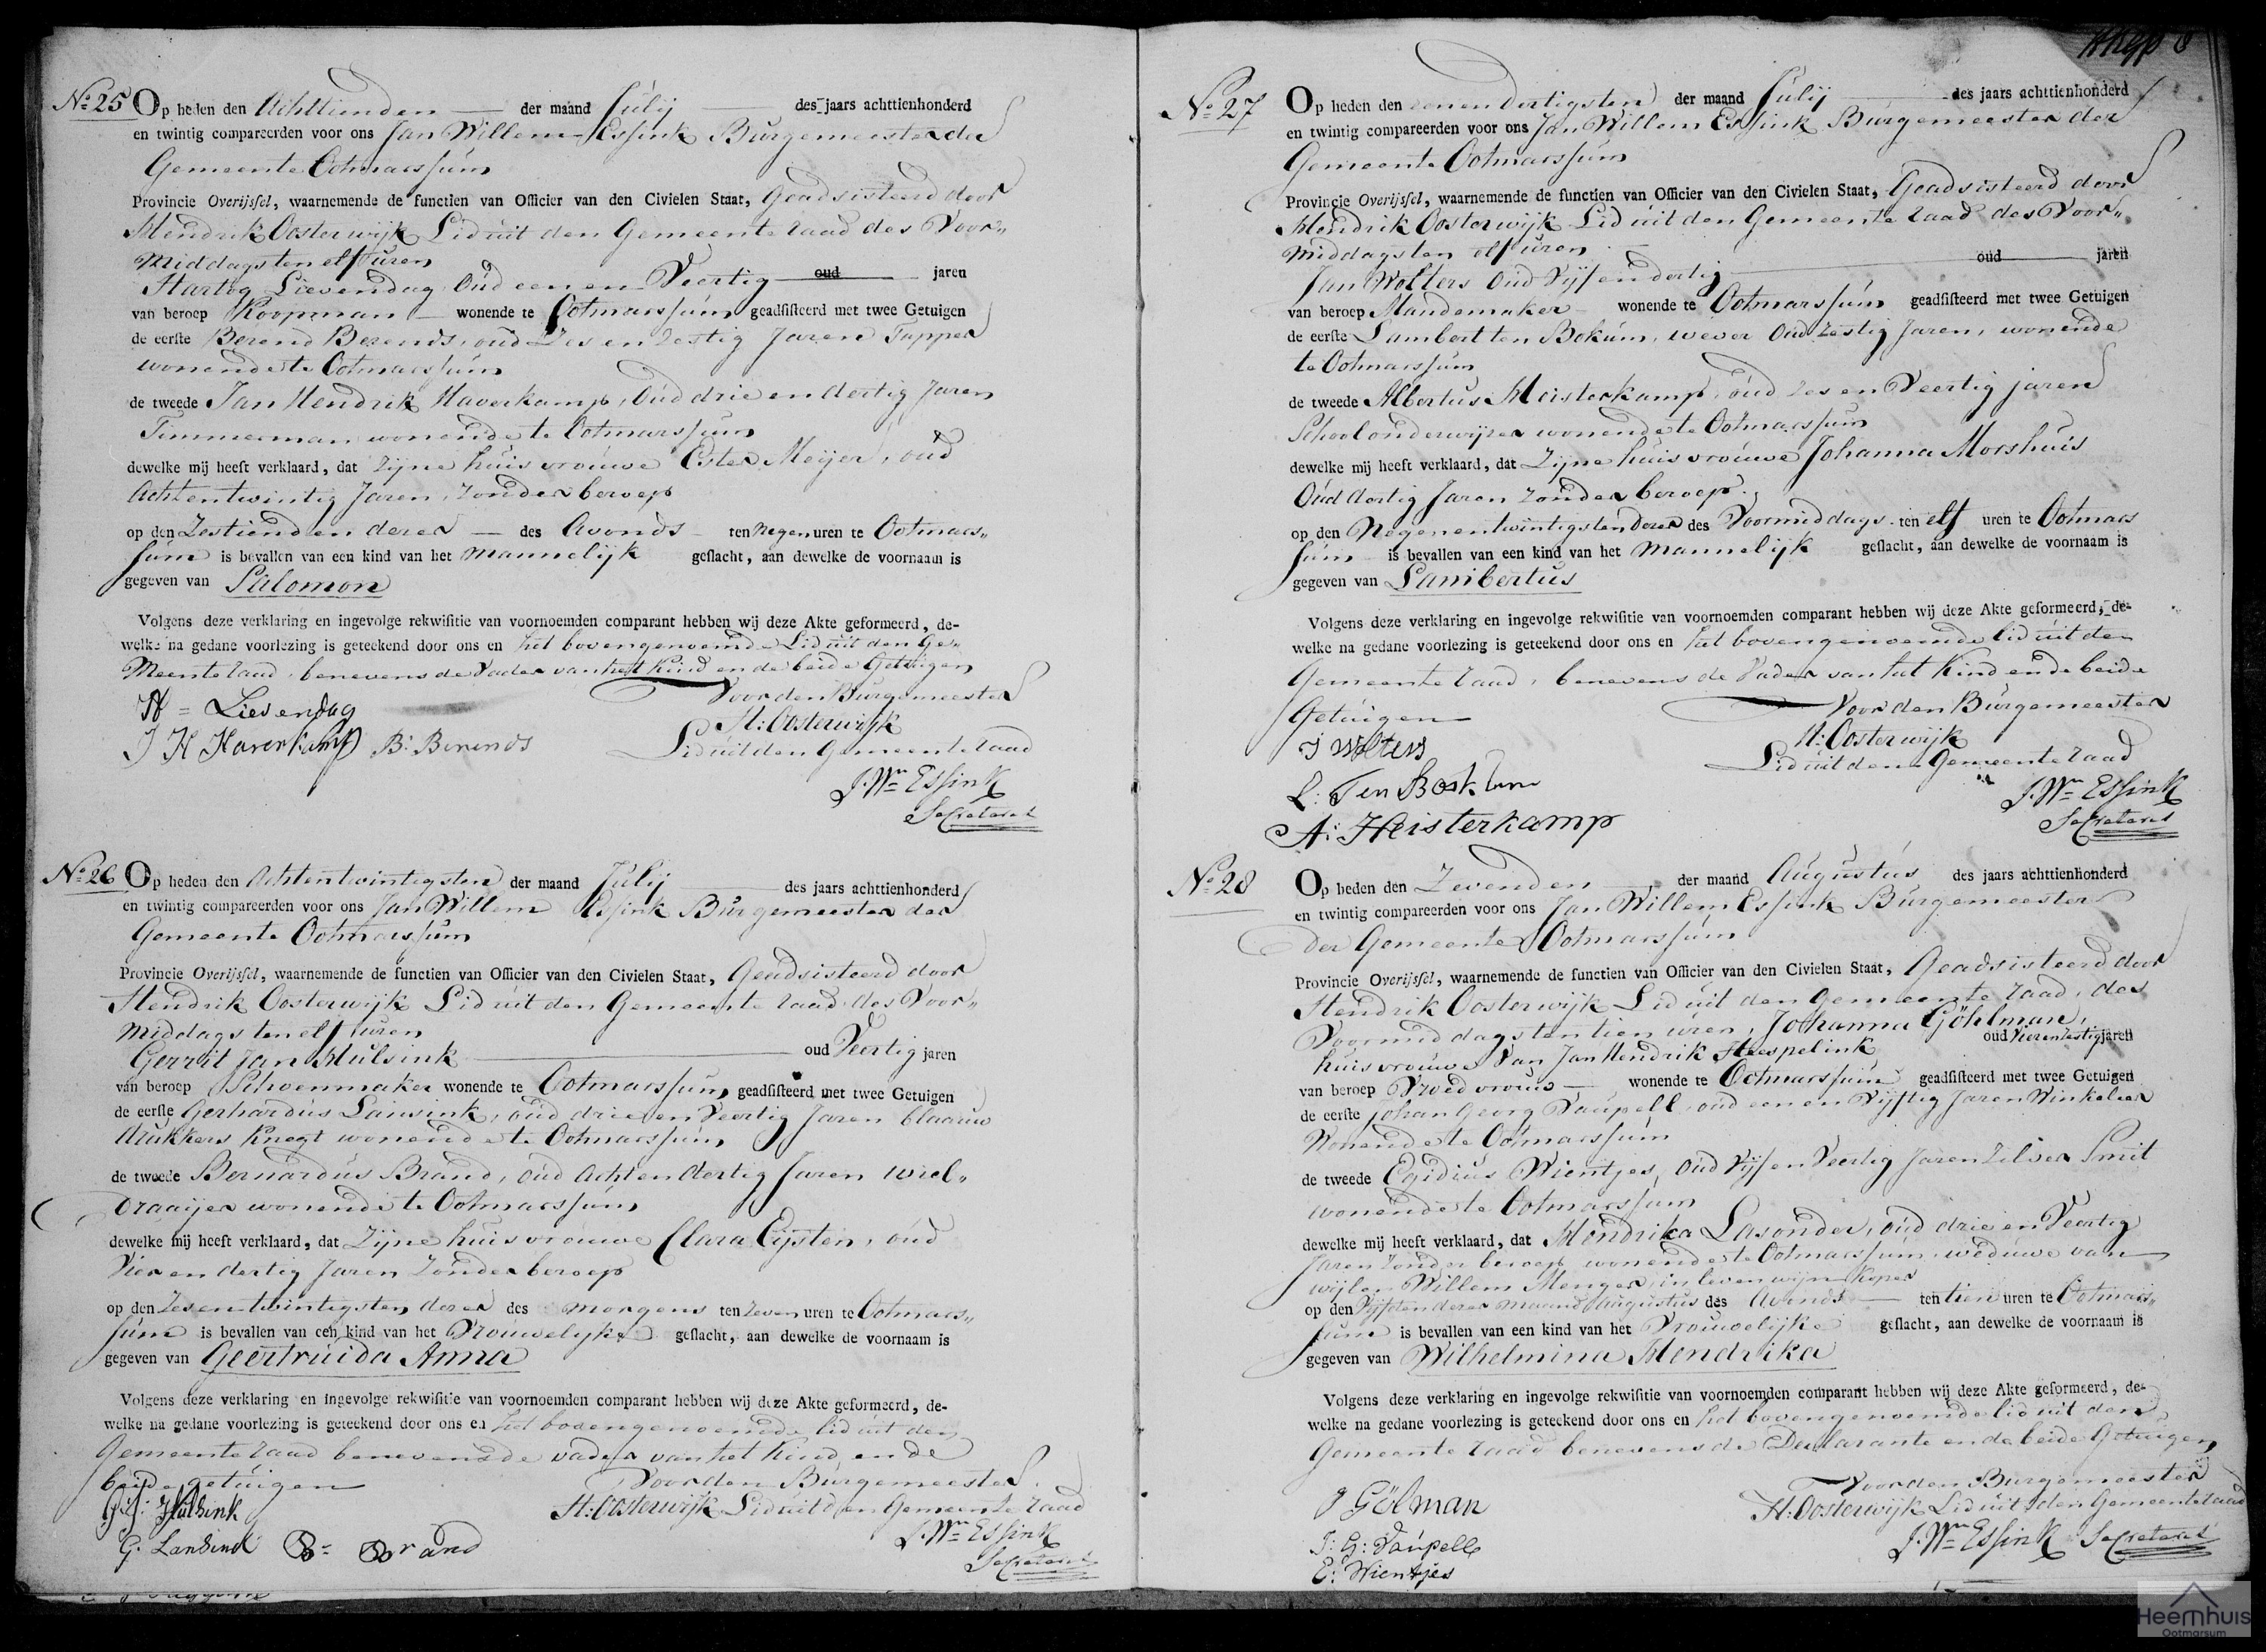 No 25 Op heden den Achttienden der maand Julij des jaars achttienhonderd
en twintig compareerden voor ons Jan Willem Essink Burgemeester der
Gemeente Ootmarssum
Provincie Overijssel, waarnemende de functien van Officier van den Civielen Staat, Geadsisteerd door
Hendrik Oosterwijk Lid uit den Gemeente raad des Voor„
middags ten elf uren
Hartog Lievendag Oud een en Veertig oud jaren
van beroep Koopman wonende te Ootmarssum geadsisteerd met twee Getuigen
de eerste Berend Berends, oud Zes en Zestig Jaren Tapper
wonende te Ootmarssum
de tweede Jan Hendrik Haverkamp, Oud drie en dertig Jaren
Timmerman wonende te Ootmarssum
dewelke mij heeft verklaard, dat Zijne huisvrouwe Ester Meijer, oud
Achtentwintig Jaren, Zonder beroep
op den Zestienden dezer des Avonds ten Negen uren te Ootmars„
sum is bevallen van een kind van het Mannelijk geslacht, aan dewelke de voornaam is
gegeven van Salomon
Volgens deze verklaring en ingevolge rekwisitie van voornoemden comparant hebben wij deze Akte geformeerd, de-
welke na gedane voorlezing is geteekend door ons en het bovengenoemde Lid uit den Ge„
Meente raad, benevens de Vader van het Kind en de beide Getuigen
Voor den Burgemeester
H = Lievendag
H: Oosterwijk
J H Haverkamp B: Berends
Lid uit den Gemeente raad
J. Wm Essink
Secretaris
No 26 Op heden den Achtentwintigsten der maand Julij des jaars achttienhonderd
en twintig compareerden voor ons Jan Willem Essink Burgemeester der
Gemeente Ootmarssum
Provincie Overijssel, waarnemende de functien van Officier van den Civielen Staat, Geadsisteerd door
Hendrik Oosterwijk Lid uit den Gemeente raad des Voor„
middags ten elf uren
Gerrit Jan Hulsink oud Veertig jaren
van beroep Schoenmaker wonende te Ootmarssum geadsisteerd met twee Getuigen
de eerste Gerhardus Lansink, oud drie en Veertig Jaren blaauw
drukkers Knegt wonende te Ootmarssum
de tweede Bernardus Brand, oud Acht en dertig Jaren wiel„
draaijer wonende te Ootmarssum
dewelke mij heeft verklaard, dat Zijne huisvrouwe Clara Eijsten, oud
Vier en dertig Jaren Zonder beroep
op den Zesentwintigsten dezer des morgens ten Zeven uren te Ootmars„
sum is bevallen van een kind van het Vrouwelijke geslacht, aan dewelke de voornaam is
gegeven van Geertruida Anna
Volgens deze verklaring en ingevolge rekwisitie van voornoemden comparant hebben wij deze Akte geformeerd, de-
welke na gedane voorlezing is geteekend door ons en het bovengenoemde lid uit den
Gemeente raad benevens de vader van het Kind en de
beide getuigen
Voor den Burgemeester
G: J: Hulsink
H: Oosterwijk Lid uit den Gemeente raad
J. Wm Essink
G. Lansink B= Brand
Secretaris
No 27 Op heden den eenendertigsten der maand Julij des jaars achttienhonderd
en twintig compareerden voor ons Jan Willem Essink Burgemeester der
Gemeente Ootmarssum
Provincie Overijssel, waarnemende de functien van Officier van den Civielen Staat, Geadsisteerd door
Hendrik Oosterwijk Lid uit den Gemeente raad des Voor„
middags ten elf uren
Jan Wolters Oud Vijf en dertig oud jaren
van beroep Mandemaker wonende te Ootmarssum geadsisteerd met twee Getuigen
de eerste Lambert ten Bokum, wever Oud Zestig Jaren, wonende
te Ootmarssum
de tweede Albertus Heisterkamp, oud Zes en Veertig jaren
Schoolonderwijzer wonende te Ootmarssum
dewelke mij heeft verklaard, dat Zijne huisvrouwe Johanna Morshuis
Oud dertig Jaren Zonder beroep
op den Negenentwintigsten dezer des Voormiddags ten elf uren te Ootmars
sum is bevallen van een kind van het Mannelijk geslacht, aan dewelke de voornaam is
gegeven van Lambertus
Volgens deze verklaring en ingevolge rekwisitie van voornoemden comparant hebben wij deze Akte geformeerd, de-
welke na gedane voorlezing is geteekend door ons en het bovengenoemde lid uit den
Gemeente raad, benevens de Vader van het Kind en de beide
Getuigen
Voor den Burgemeester
J Wolters
H: Oosterwijk
Lid uit den Gemeente raad
L: Ten Bokum
J. Wm Essink
A: Heisterkamp
Secretaris
No 28 Op heden den Zevenden der maand Augustus des jaars achttienhonderd
en twintig compareerden voor ons Jan Willem Essink Burgemeester
der Gemeente Ootmarssum
Provincie Overijssel, waarnemende de functien van Officier van den Civielen Staat, Geadsisteerd door
Hendrik Oosterwijk Lid uit den Gemeente raad, des
Voormiddags ten tien uren, Johanna Göhlman,
huisvrouwe Van Jan Hendrik Heespelink oud Vierenzestig jaren
van beroep Vroedvrouw wonende te Ootmarssum geadsisteerd met twee Getuigen
de eerste Johan Georg Vaupell, oud een en Vijftig Jaren Winkelier
Wonende te Ootmarssum
de tweede Egidius Wientjes, Oud Vijf en Veertig Jaren Zilver Smit
wonende te Ootmarssum
dewelke mij heeft verklaard, dat Hendrika Lasonder, oud drie en Veertig
Jaren Zonder beroep wonende te Ootmarssum, weduwe van
wijlen Willem Menger, in leven wijnkoper
op den Vijfden dezer maand Augustus des Avonds ten tien uren te Ootmars„
sum is bevallen van een kind van het Vrouwelijke geslacht, aan dewelke de voornaam is
gegeven van Wilhelmina Hendrika
Volgens deze verklaring en ingevolge rekwisitie van voornoemden comparant hebben wij deze Akte geformeerd, de-
welke na gedane voorlezing is geteekend door ons en het bovengenoemde lid uit den
Gemeente raad benevens de Declarante en de beide Getuigen
Voor den Burgemeester
J Gölman
H: Oosterwijk Lid uit den Gemeente raad
J: G: Vaupell
J. Wm Essink Secretaris
E: Wientjes
Heemhuis
Ootmarsum